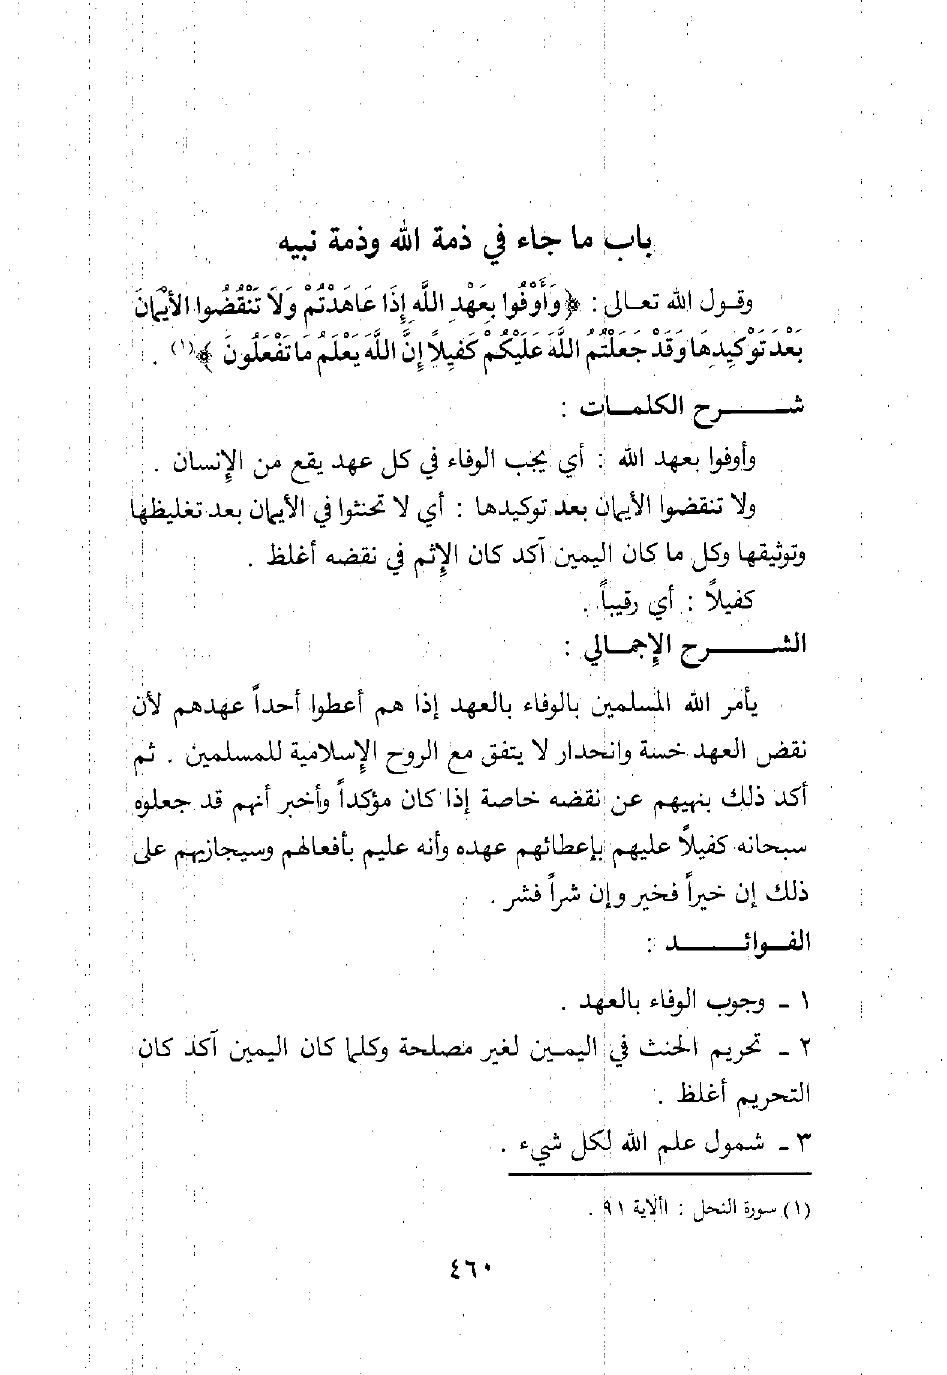 باب ما جاء في ذمة الله وذمة نبيه
وقول الله تعالى : ﴿وَأَوْفُوا بِعَهْدِ اللَّهِ إِذَا عَاهَدْتُمْ وَلَا تَنْقُضُوا الأَيْمَانَ
بَعْدَ تَوْكِيدِهَا وَقَدْ جَعَلْتُمُ اللَّهَ عَلَيْكُمْ كَفِيلاً إِنَّ اللَّهَ يَعْلَمُ مَا تَفْعَلُونَ﴾(١) .
شـــــرح الكلمـــات :
وأوفوا بعهد الله : أي يجب الوفاء في كل عهد يقع من الإنسان .
ولا تنقضوا الأيمان بعد توكيدها : أي لا تحنثوا في الأيمان بعد تغليظها
وتوثيقها وكل ما كان اليمين آكد كان الإثم في نقضه أغلظ .
كفيلاً : أي رقيباً .
الشـــــرح الإجمـــالي :
يأمر الله المسلمين بالوفاء بالعهد إذا هم أعطوا أحداً عهدهم لأن
نقض العهد خسة وانحدار لا يتفق مع الروح الإسلامية للمسلمين . ثم
أكد ذلك بنهيهم عن نقضه خاصة إذا كان مؤكداً وأخبر أنهم قد جعلوه
سبحانه كفيلاً عليهم بإعطائهم عهده وأنه عليم بأفعالهم وسيجازيهم على
ذلك إن خيراً فخير وإن شراً فشر .
الفـــوائـــــد :
١ ـ وجوب الوفاء بالعهد .
٢ ـ تحريم الحنث في اليمـين لغير مصلحة وكلما كان اليمين آكد كان
التحريم أغلظ .
٣ ـ شمول علم الله لكل شيء .
(١) سورة النحل : األاية ٩١ .
٤٦٠